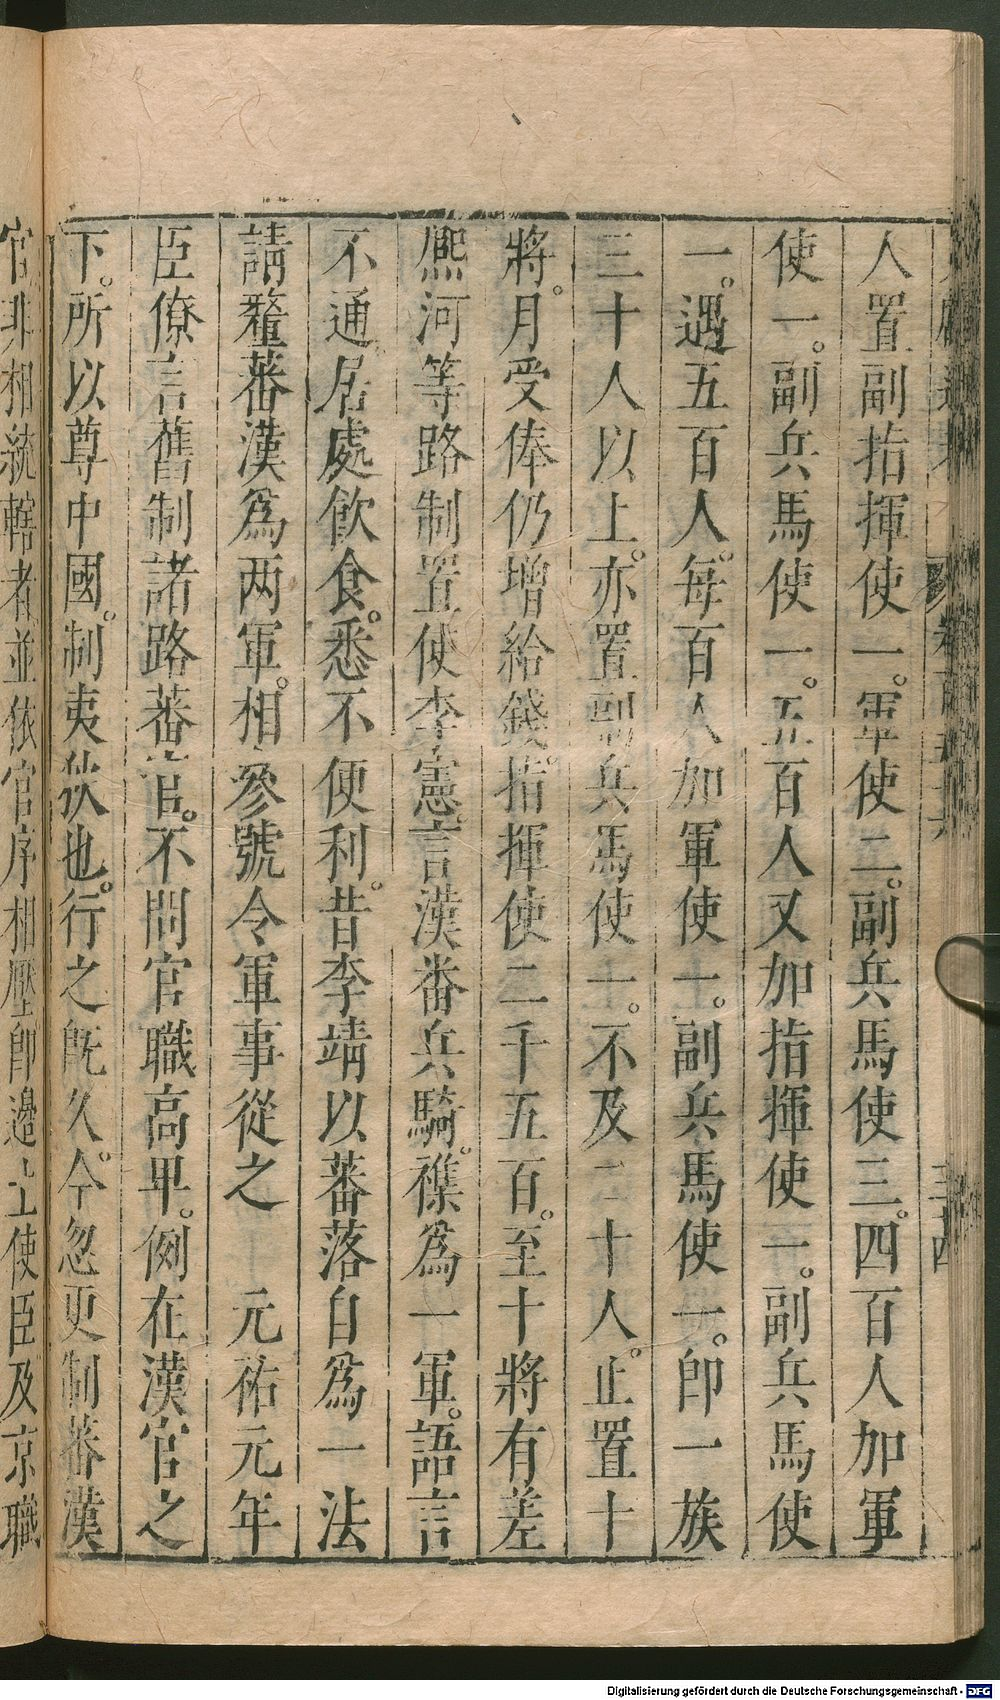 人置副指揮使一。軍使二。副兵馬使三。四百人加軍
使一。副兵馬使一。五百人又加指揮使一。副兵馬使
一。遇五百人。每百人加軍使一。副兵馬使一。即一族
三十人以上。亦置副兵馬使一。不及二十人。止置十
將。月受俸仍增給錢。指揮使二千五百。至十將有差
熈河等路制置使李憲言漢番兵騎。襍爲一軍。語言
不通居處飲食。悉不便利。昔李靖以蕃落自爲一法
請釐蕃漢爲两軍。相參號令軍事從之 元祐元年
臣僚言舊制諸路蕃官。不問官職高卑。例在漢官之
下。所以尊中國。制夷狄也。行之旣久。今忽更制蕃漢
官非相統轄者並依官序相壓卽邊上使臣及京職
Digitalisierung gefördert durch die Deutsche Forschungsgemeinschaft - DFG